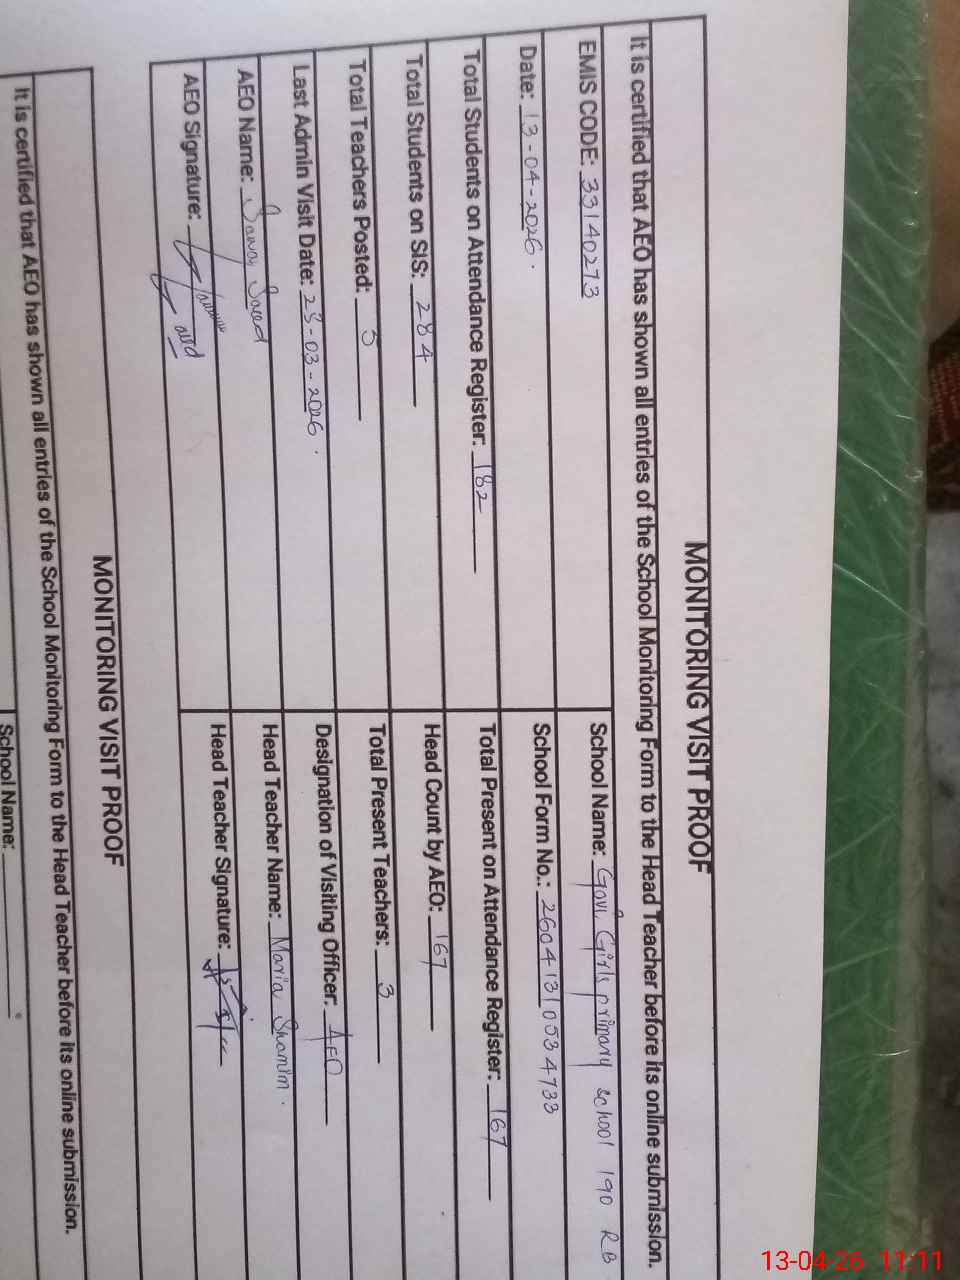 MONITORING VISIT PROOF
It is certified that AEO has shown all entries of the School Monitoring Form to the Head Teacher before its online submission.
EMIS CODE: 33140273
School Name: Govt. Girls primary school 190 RB
Date: 13-04-2026.
School Form No.: 2604131053 4733
Total Students on Attendance Register: 182
Total Present on Attendance Register: 167
Total Students on SIS: 284
Head Count by AEO: 167
Total Teachers Posted:
Total Present Teachers: 3
Last Admin Visit Date: 28-03-2026.
Designation of Visiting Officer: AEO
AEO Name: Saeed
Head Teacher Name: Maria Shamim.
AEO Signature:
Head Teacher Signature:
MONITORING VISIT PROOF
It is certified that AEO has shown all entries of the School Monitoring Form to the Head Teacher before its online submission.
School Name:
13-04-26 11:11